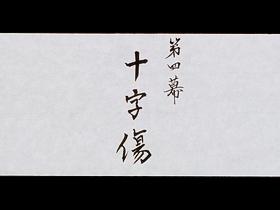 第四幕
十字傷